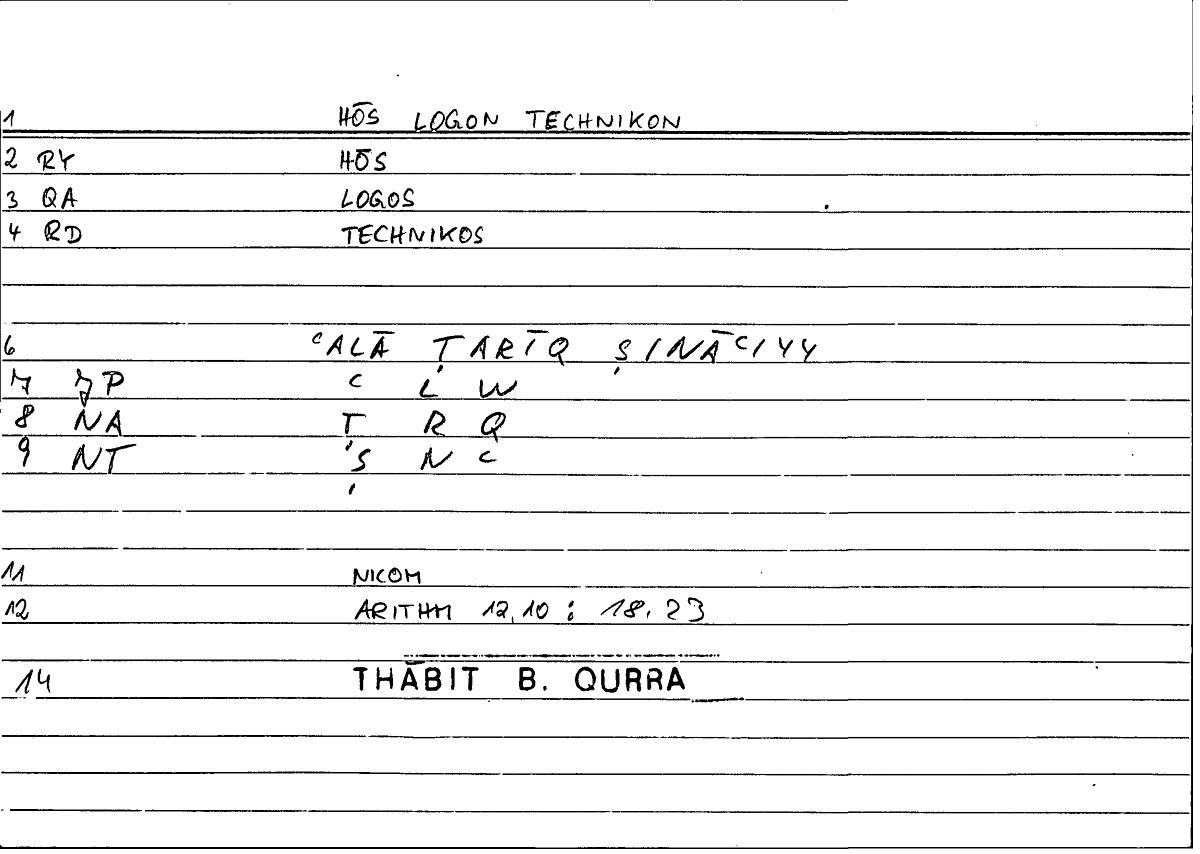 1 HŌS LOGON TECHNIKON
2 RY HŌS
3 QA LOGOS
4 RD TECHNIKOS
6 ʿALĀ ṬARĪQ ṢINĀʿIYY
7 JP ʿ L W
8 NA Ṭ R Q
9 NT Ṣ N ʿ
11 NICOM
12 ARITHM 12,10 : 18,23
14 THĀBIT B. QURRA